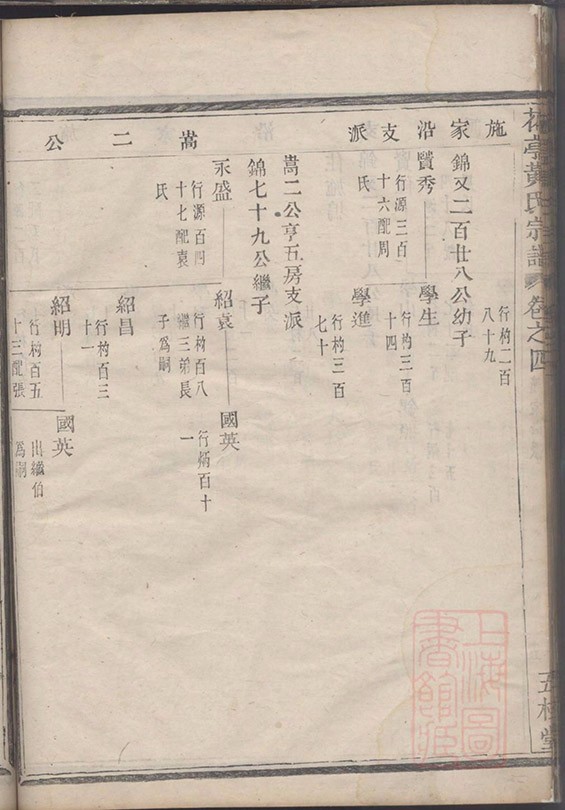 亭黃氏宗譜 卷之四 五桂堂
施
行杓二百
八十九
家
錦又二百廿八公幼子
沿
賢秀
行源三百
十六配周
氏
學生
行杓三百
十四
支
學進
行杓三百
七十
派
嵩二公亨五房支派
錦七十九公繼子
嵩
二
公
永盛
行源百四
十七配袁
氏
紹袁
行杓百八
繼三弟長
子爲嗣
國英
行炳百十
一
紹昌
行杓百三
十一
紹明
行杓百五
十三配張
國英
出繼伯
爲嗣
上海圖
書館藏